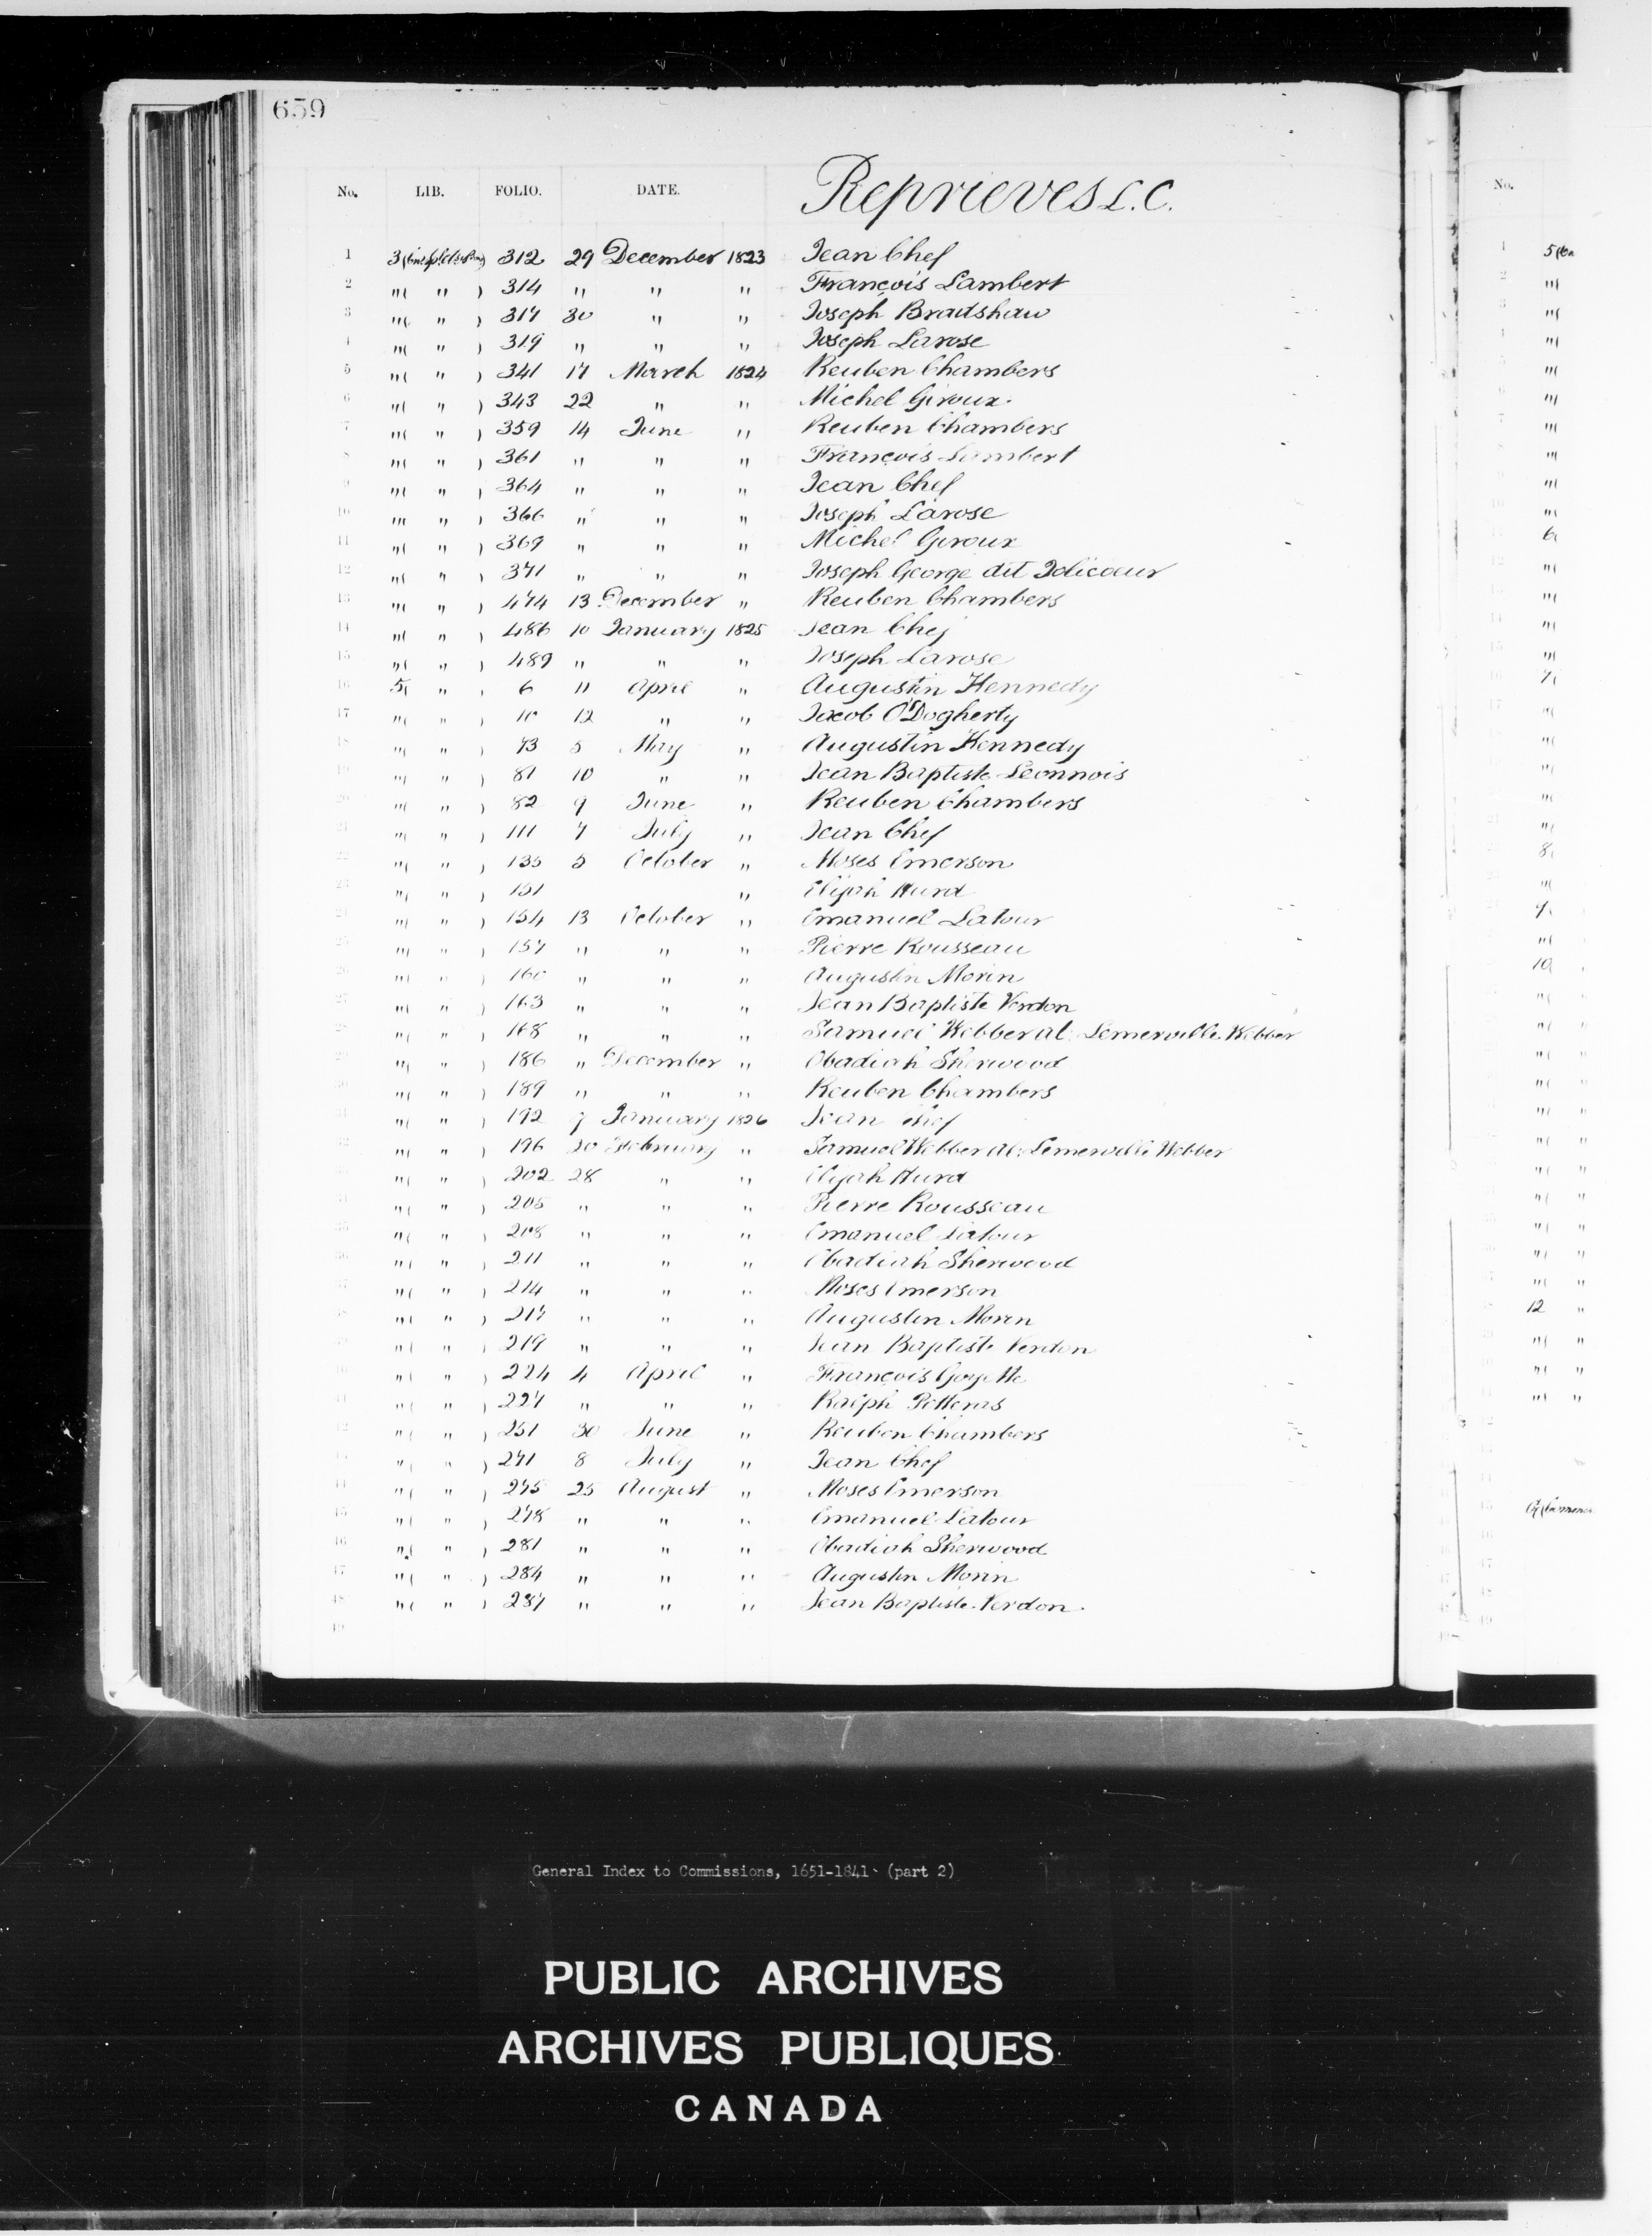 659
No. LIB. FOLIO. DATE. Reprieves L.C.
1 3 312 29 December 1823 Jean Chef
2 " ( " ) 314 " " " François Lambert
3 " ( " ) 317 30 " " Joseph Bradshaw
4 " ( " ) 319 " " " Joseph Larose
5 " ( " ) 341 17 March 1824 Reuben Chambers
6 " ( " ) 343 22 " " Michel Giroux.
7 " ( " ) 359 14 June " Reuben Chambers
8 " ( " ) 361 " " " François Lambert
9 " ( " ) 364 " " " Jean Chef
10 " ( " ) 366 " " " Joseph Larose
11 " ( " ) 369 " " " Michel Giroux
12 " ( " ) 371 " " " Joseph George dit Jolicoeur
13 " ( " ) 474 13 December " Reuben Chambers
14 " ( " ) 486 10 January 1825 Jean Chef
15 " ( " ) 489 " " " Joseph Larose
16 5( " ) 6 11 April " Augustin Kennedy
17 " ( " ) 10 12 " " Jacob O'Dogherty
18 " ( " ) 73 5 May " Augustin Kennedy
19 " ( " ) 81 10 " " Jean Baptiste Leonnois
20 " ( " ) 82 9 June " Reuben Chambers
21 " ( " ) 111 7 July " Jean Chef
22 " ( " ) 135 5 October " Moses Emerson
23 " ( " ) 151 " Elijah Hurd
24 " ( " ) 154 13 October " Emanuel Latour
25 " ( " ) 157 " " " Pierre Rousseau
26 " ( " ) 160 " " " Augustin Morin
27 " ( " ) 163 " " " Jean Baptiste Verdon
28 " ( " ) 168 " " " Samuel Webber al. Semerville Webber
29 " ( " ) 186 " December " Obadiah Sherwood
30 " ( " ) 189 " " " Reuben Chambers
31 " ( " ) 192 7 January 1826 Jean Chef
32 " ( " ) 196 20 February " Samuel Webber al. Semerville Webber
33 " ( " ) 202 28 " " Elijah Hurd
34 " ( " ) 205 " " " Pierre Rousseau
35 " ( " ) 208 " " " Emanuel Latour
36 " ( " ) 211 " " " Obadiah Sherwood
37 " ( " ) 214 " " " Moses Emerson
38 " ( " ) 217 " " " Augustin Morin
39 " ( " ) 219 " " " Jean Baptiste Verdon
40 " ( " ) 224 4 April " François Goyette
41 " ( " ) 227 " " " Ralph
42 " ( " ) 251 30 June " Reuben Chambers
43 " ( " ) 271 8 July " Jean Chef
44 " ( " ) 275 25 August " Moses Emerson
45 " ( " ) 278 " " " Emanuel Latour
46 " ( " ) 281 " " " Obadiah Sherwood
47 " ( " ) 284 " " " Augustin Morin
48 " ( " ) 287 " " " Jean Baptiste Verdon.
49
No.
General Index to Commissions, 1651-1841 (part 2)
PUBLIC ARCHIVES
ARCHIVES PUBLIQUES
CANADA